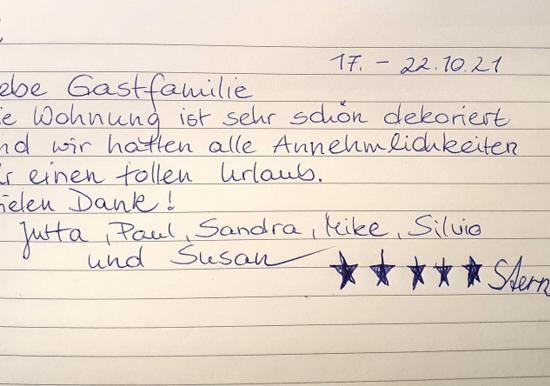 17. – 22.10.21
ebe Gastfamilie
ie Wohnung ist sehr schön dekoriert
nd wir hatten alle Annehmlichkeiten
r einen tollen Urlaub.
ielen Dank!
Jutta, Paul, Sandra, Mike, Silvio
und Susan
★★★★★ Stern